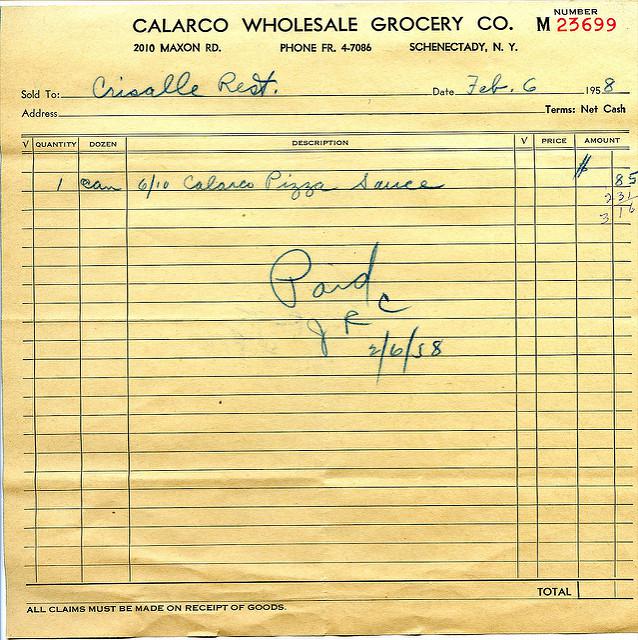 NUMBER
CALARCO WHOLESALE GROCERY CO. M 23699
2010 MAXON RD. PHONE FR. 4-7086 SCHENECTADY, N. Y.
Sold To: Crisalle Rest. Date Feb. 6 1958
Address Terms: Net Cash
V QUANTITY DOZEN DESCRIPTION V PRICE AMOUNT
$
1 can 6/10 Calarco Pizza Sauce 85
2 31
3 16
Paid
JRC
2/6/58
TOTAL
ALL CLAIMS MUST BE MADE ON RECEIPT OF GOODS.